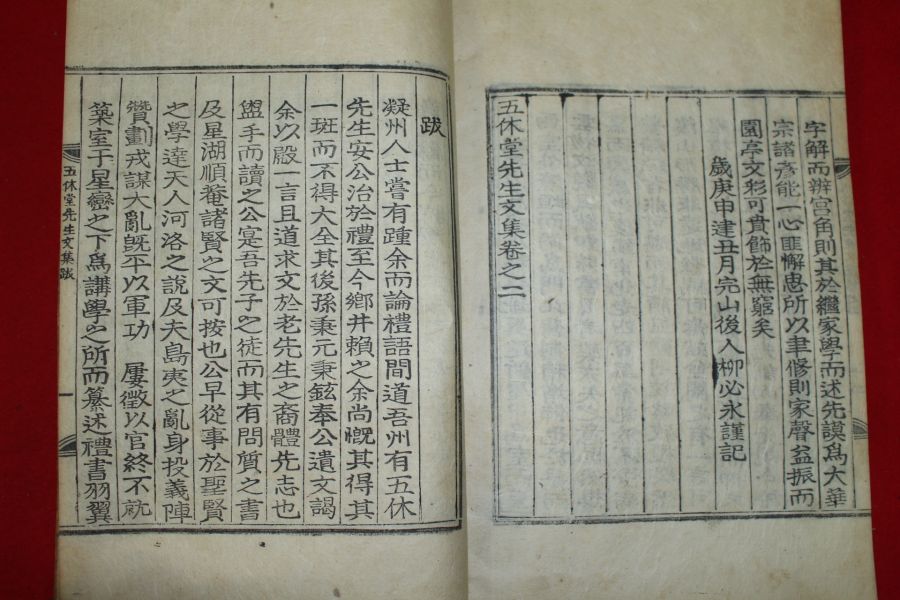 字解而辨宫角則其於繼家學而述先謨爲大華
宗諸彦能一心匪懈思所以聿修則家聲益振而
園亭文彩可貴飾於無窮矣
歲庚申建丑月完山後人柳必永謹記
五休堂先生文集卷之二
跋
凝州人士嘗有踵余而論禮語間道吾州有五休
先生安公治於禮至今鄉井賴之余尚慨其得其
一班而不得大全其後孫秉元秉鉉奉公遺文謁
余以殿一言且道求文於老先生之裔體先志也
盥手而讀之公寔吾先子之徒而其有問質之書
及星湖順菴諸賢之文可按也公早從事於聖賢
之學達天人河洛之說及夫島夷之亂身投義陣
贊劃戎謀大亂旣平以軍功 屢徵以官終不就
築室于星巒之下爲講學之所而纂述禮書羽翼
五休堂先生文集跋
一